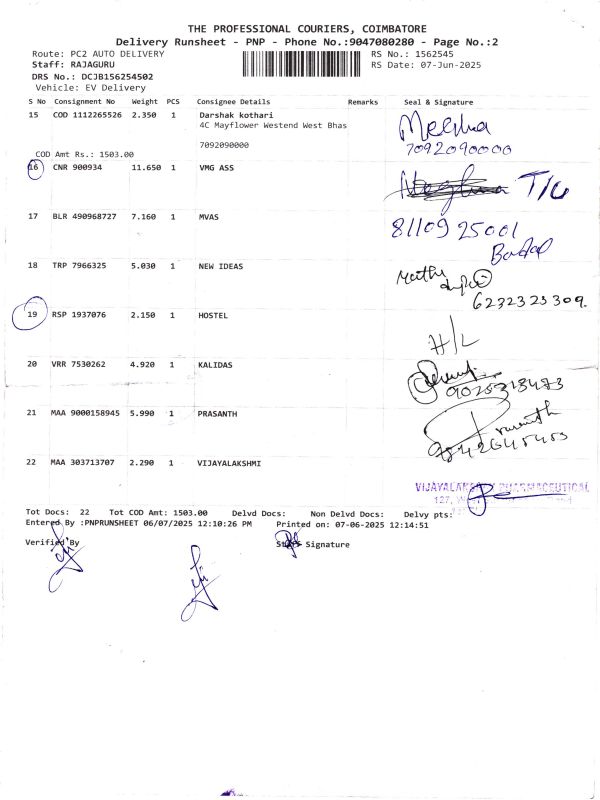 THE PROFESSIONAL COURIERS, COIMBATORE
Delivery Runsheet - PNP - Phone No.:9047080280 - Page No.:2
Route: PC2 AUTO DELIVERY RS No.: 1562545
Staff: RAJAGURU RS Date: 07-Jun-2025
DRS No.: DCJB156254502
Vehicle: EV Delivery
S No Consignment No Weight PCS Consignee Details Remarks Seal & Signature
15 COD 1112265526 2.350 1 Darshak kothari
4C Mayflower Westend West Bhas
Meena
7092090000
7092090000
COD Amt Rs.: 1503.00
16 CNR 900934 11.650 1 VMG ASS
17 BLR 490968727 7.160 1 MVAS
8110925001
18 TRP 7966325 5.030 1 NEW IDEAS
6232323309.
19 RSP 1937076 2.150 1 HOSTEL
H/L
20 VRR 7530262 4.920 1 KALIDAS
21 MAA 9000158945 5.990 1 PRASANTH
22 MAA 303713707 2.290 1 VIJAYALAKSHMI
PHARMACEUTICAL
127,
Tot Docs: 22 Tot COD Amt: 1503.00 Delvd Docs: Non Delvd Docs: Delvy pts:
Entered By :PNPRUNSHEET 06/07/2025 12:10:26 PM Printed on: 07-06-2025 12:14:51
Verified By Staff Signature